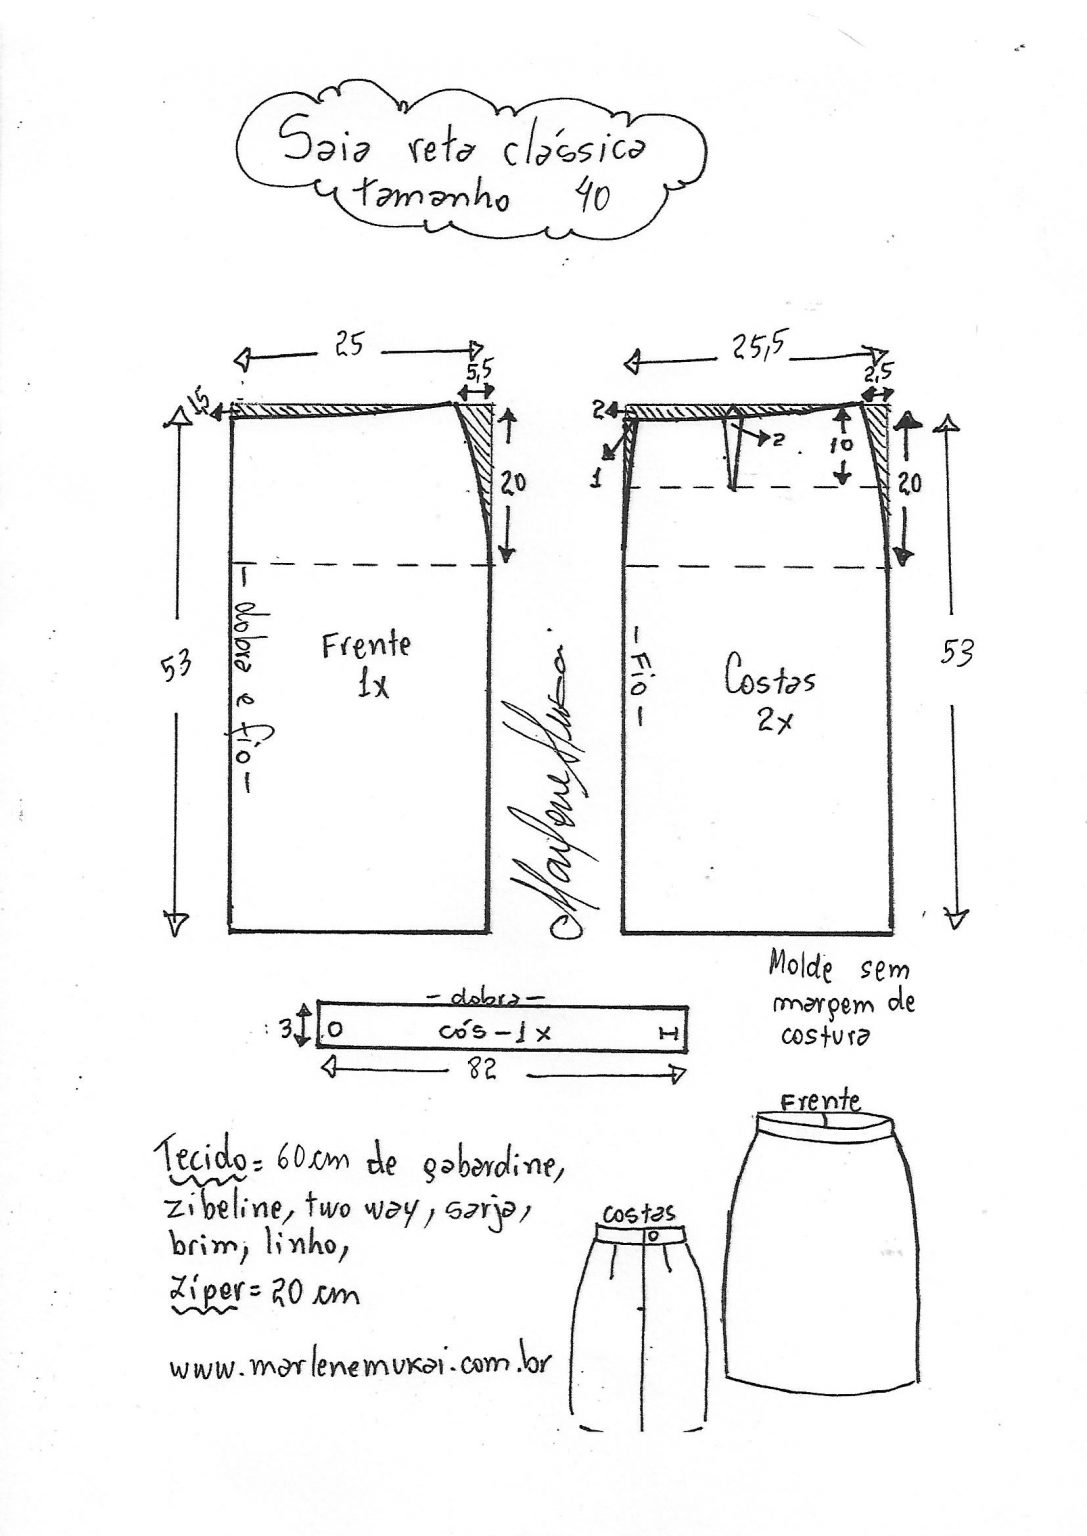 Saia reta clássica
tamanho 40
25
5,5
15
20
53
- dobra e fio -
Frente
1x
25,5
2,5
2
2
1
10
20
53
- Fio -
Costas
2x
Marlene Mukai
Molde sem
margem de
costura
- dobra -
3
cós - 1x
82
Tecido = 60 cm de gabardine,
zibeline, two way, sarja,
brim, linho,
Zíper = 20 cm
www.marlenemukai.com.br
costas
Frente